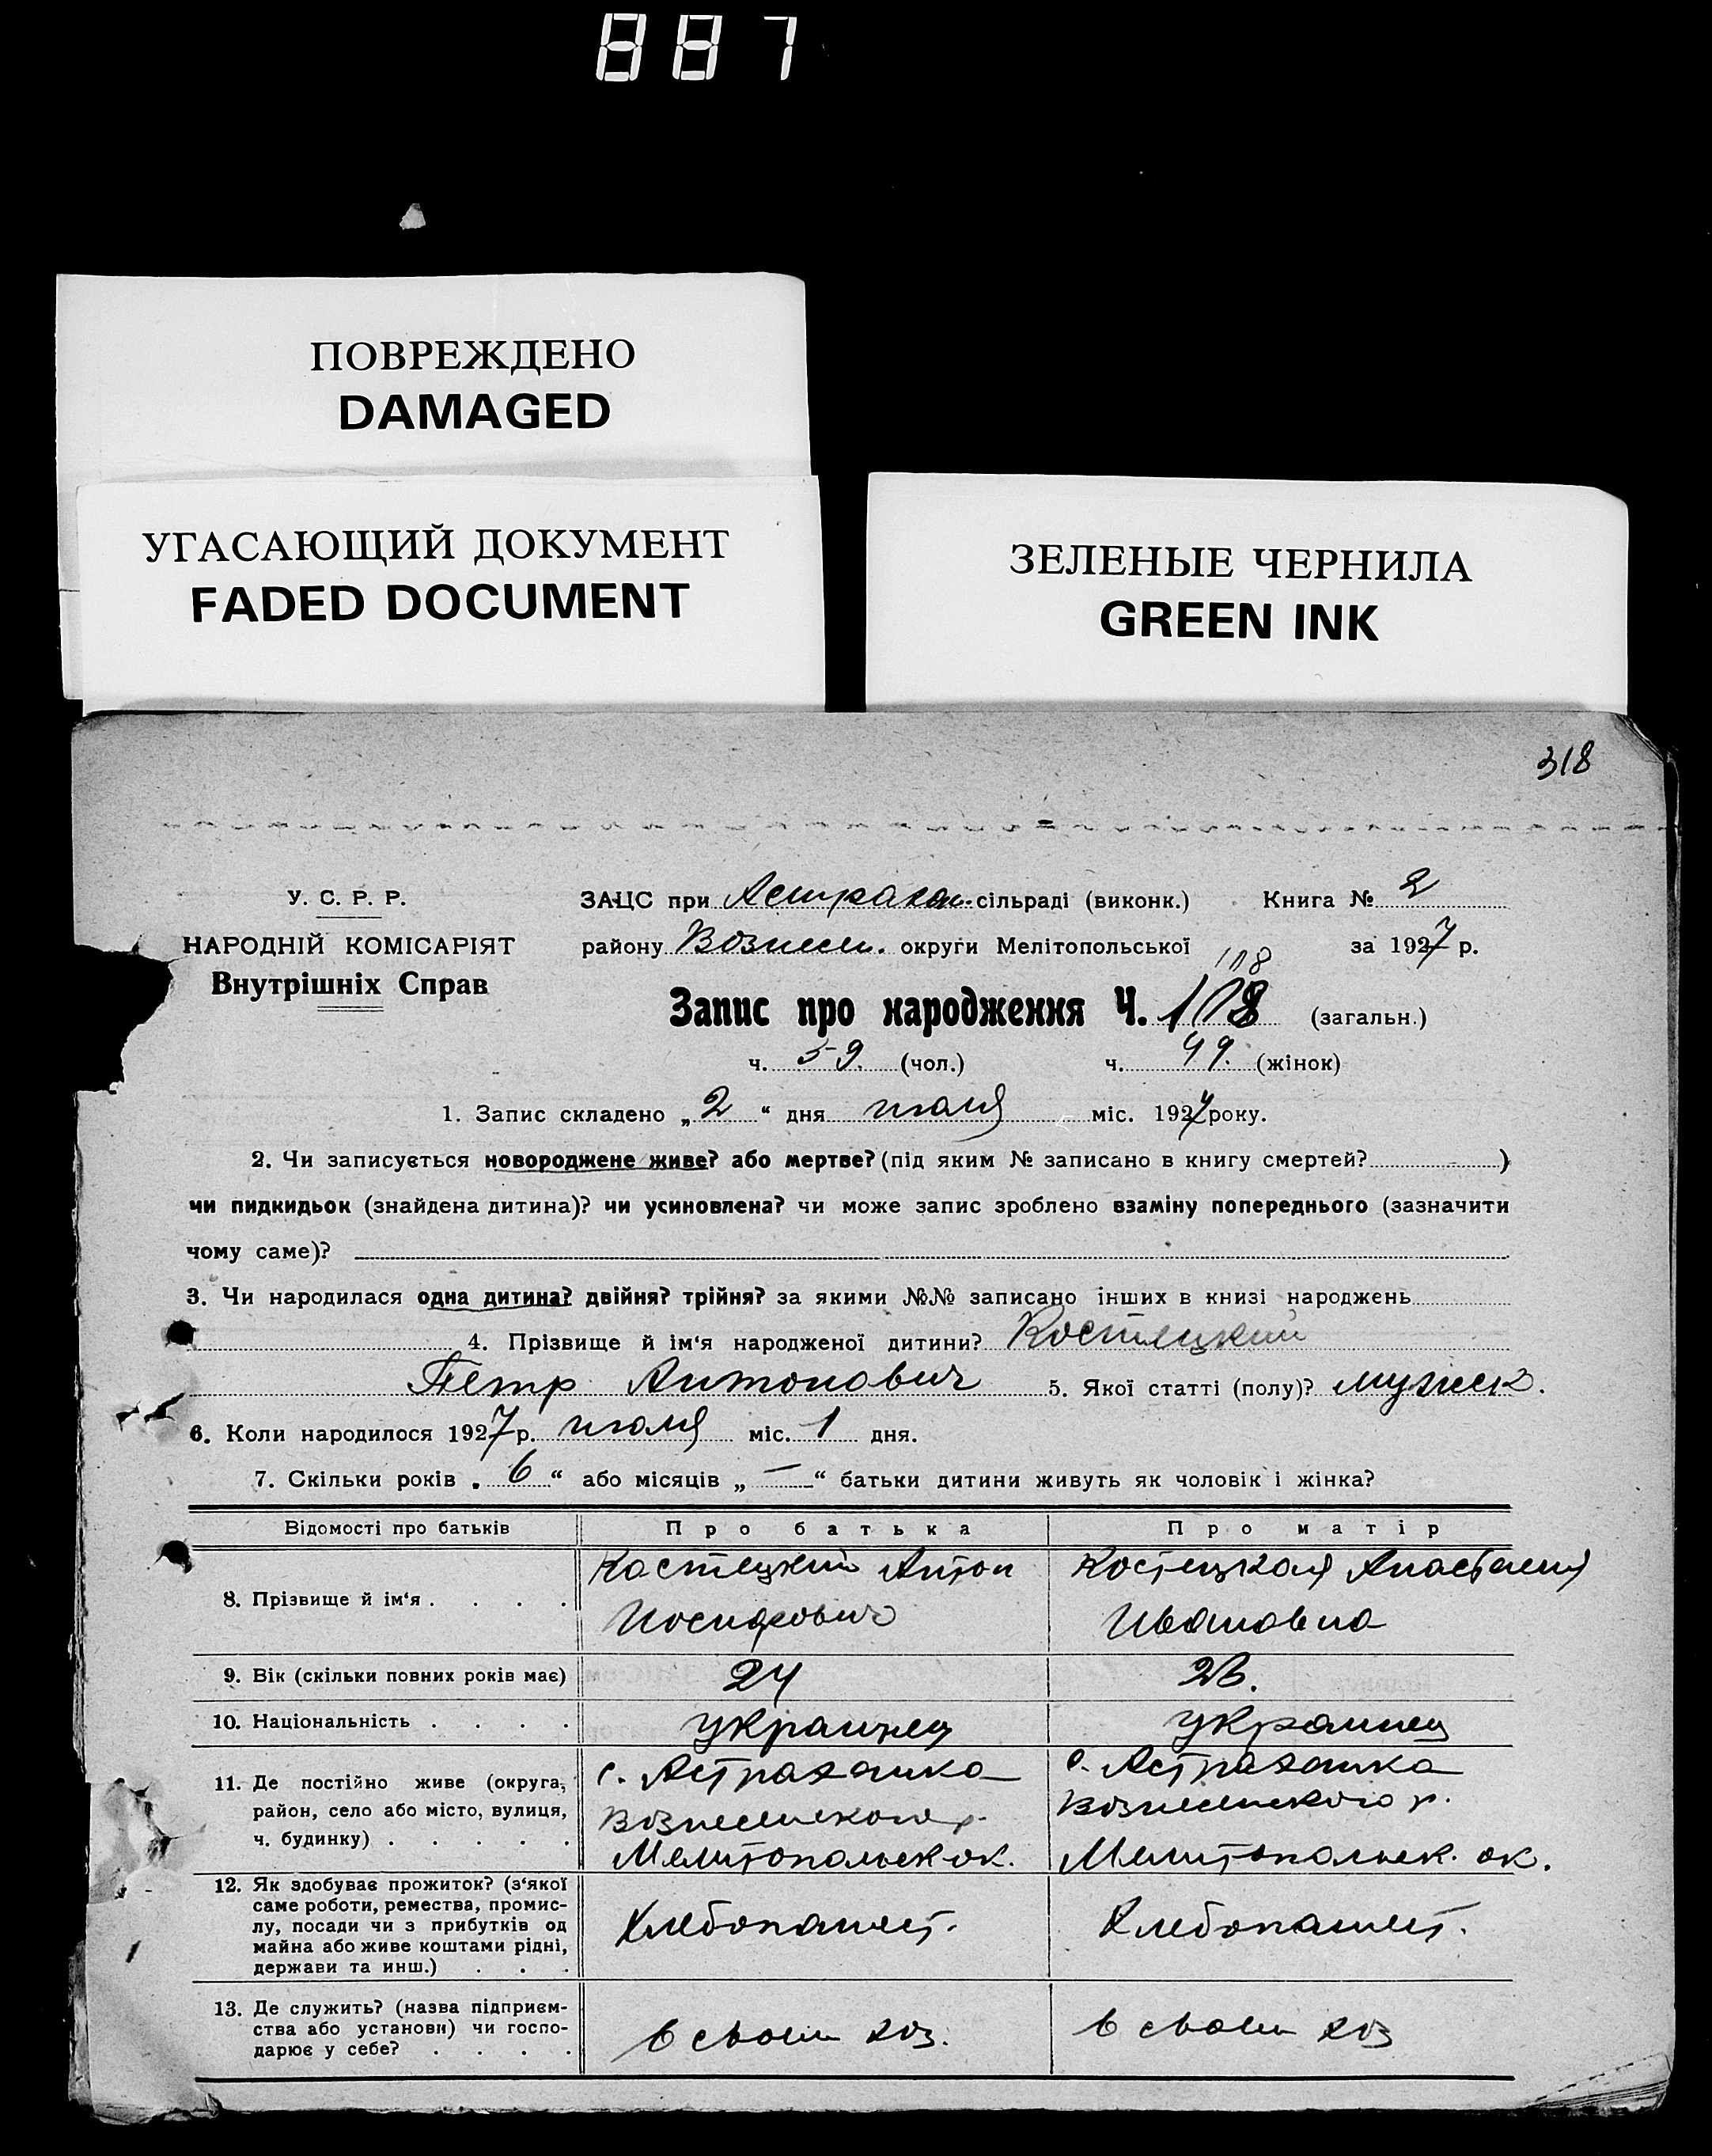 887
ПОВРЕЖДЕНО
DAMAGED
УГАСАЮЩИЙ ДОКУМЕНТ
FADED DOCUMENT
ЗЕЛЕНЫЕ ЧЕРНИЛА
GREEN INK
318
У. С. Р. Р.
НАРОДНІЙ КОМІСАРІЯТ
Внутрішніх Справ
ЗАЦС при Астрахан. сільраді (виконк.) Книга № 2
району Вознесен. округи Мелітопольської за 1927 р.
118
Запис про народження Ч. 108 (загальн.)
ч. 59. (чол.) ч. 49. (жінок)
1. Запис складено „ 2 “ дня июля міс. 1927 року.
2. Чи записується новороджене живе? або мертве? (під яким № записано в книгу смертей? )
чи пидкидьок (знайдена дитина)? чи усиновлена? чи може запис зроблено взаміну попереднього (зазначити
чому саме)?
3. Чи народилася одна дитина? двійня? трійня? за якими №№ записано інших в книзі народжень
4. Прізвище й ім‘я народженої дитини? Костецкий
Петр Антонович 5. Якої статті (полу)? мужск.
6. Коли народилося 1927 р. июля міс. 1 дня.
7. Скільки років „ 6 “ або місяців „ — “ батьки дитини живуть як чоловік і жінка?
Відомості про батьків Про батька Про матір
8. Прізвище й ім‘я . . . . Костецкий Антон Костецкая Анастасия
Иосифович Ивановна
9. Вік (скільки повних років має) 24 26.
10. Національність . . . . украинец украинец
11. Де постійно живе (округа, с. Астраханка с. Астраханка
район, село або місто, вулиця, Вознесенского р. Вознесенского р.
ч. будинку) . . . . . Мелитопольск ок. Мелитопольск. ок.
12. Як здобуває прожиток? (з‘якої
саме роботи, ремества, промис-
лу, посади чи з прибутків од Хлебопашест. Хлебопашест.
майна або живе коштами рідні,
держави та инш.) . . .
13. Де служить? (назва підприєм-
ства або установи) чи госпо- в своем хоз. в своем хоз
дарює у себе? . . . .